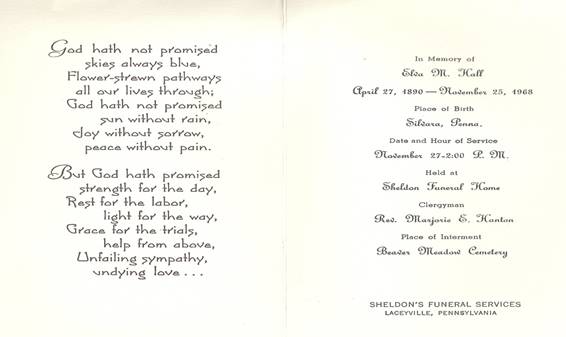 God hath not promised
skies always blue,
Flower-strewn pathways
all our lives through;
God hath not promised
sun without rain,
Joy without sorrow,
peace without pain.
But God hath promised
strength for the day,
Rest for the labor,
light for the way,
Grace for the trials,
help from above,
Unfailing sympathy,
undying love . . .
In Memory of
Elva M. Hall
April 27, 1890 — November 25, 1968
Place of Birth
Silvara, Penna.
Date and Hour of Service
November 27-2:00 P. M.
Held at
Sheldon Funeral Home
Clergyman
Rev. Marjorie E. Hanton
Place of Interment
Beaver Meadow Cemetery
SHELDON'S FUNERAL SERVICES
LACEYVILLE, PENNSYLVANIA